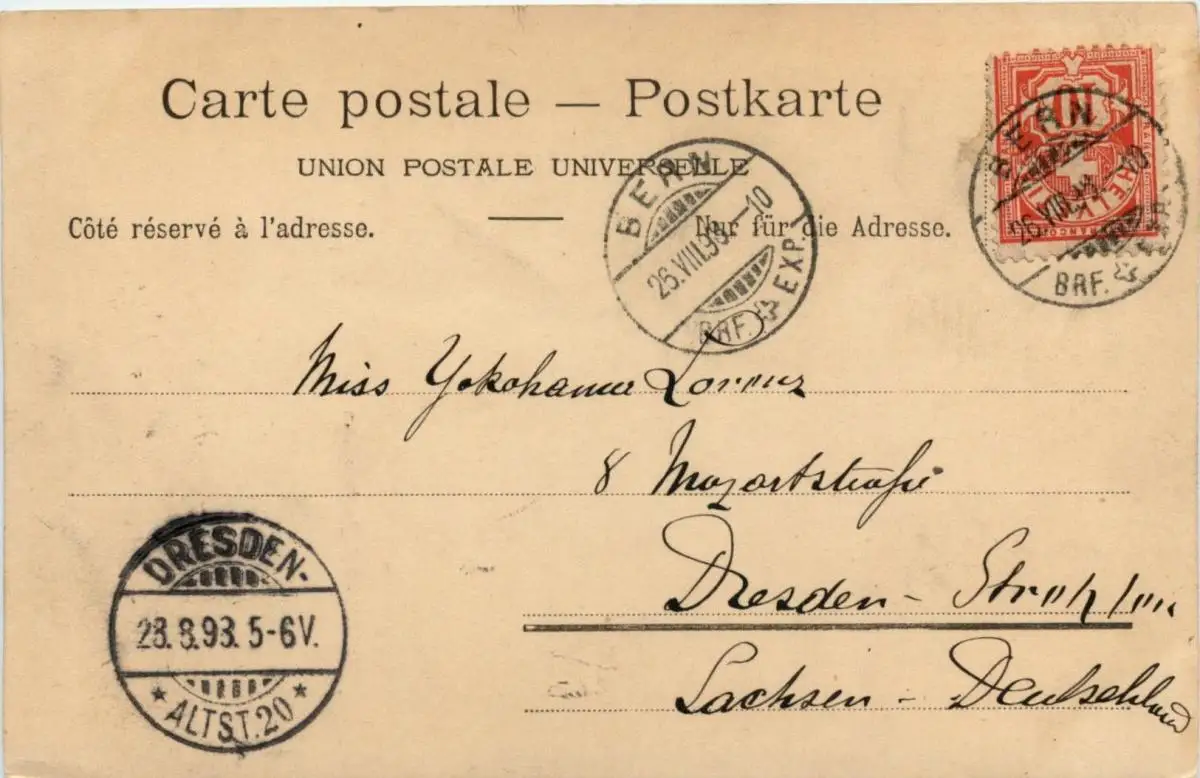 Carte postale — Postkarte
UNION POSTALE UNIVERSELLE
Côté réservé à l'adresse.
Nur für die Adresse.
BERN
26.VIII.98.–10
BRF. EXP.
BERN
26.VIII.98.–10
BRF. EXP.
FRANCO
HELVETIA
10
Miss Yokohama Lorenz
8 Mozartstraße
Dresden - Strehlen
Sachsen - Deutschland
DRESDEN-
28.8.98. 5-6V.
* ALTST.20 *